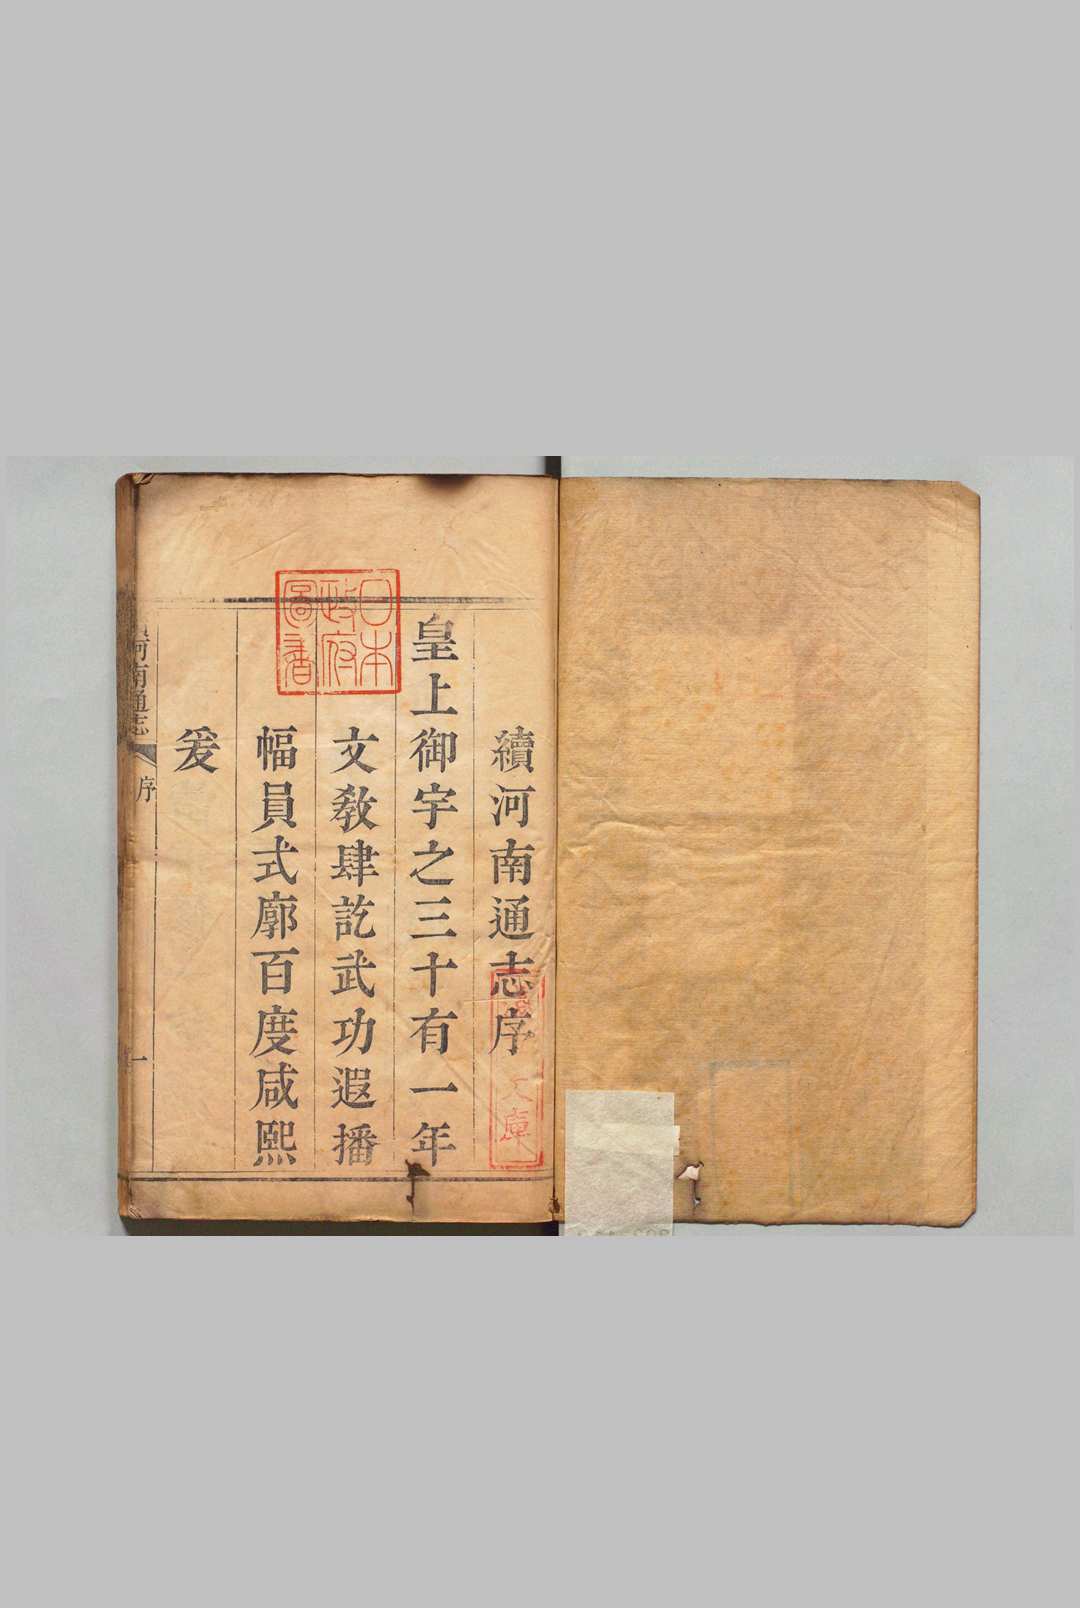 續河南通志序
皇上御宇之三十有一年
文教肆訖武功遐播
幅員式廓百度咸熙
爰
河南通志
序
一
日本
政府
圖書
文庫